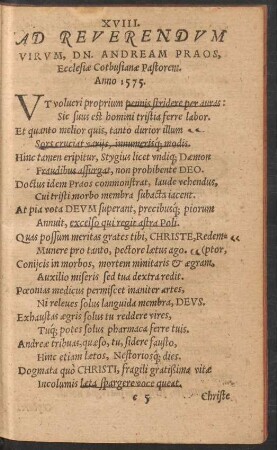 XVIII.
AD REVERENDVM
VIRVM, DN. ANDREAM PRAOS,
Ecclesiæ Cotbusianæ Pastorem.
Anno 1575.
VT volucri proprium pennis stridere per auras:
Sic suus est homini tristia ferre labor.
Et quanto melior quis, tanto durior illum
Sors cruciat varijs, innumerisq; modis.
Hinc tamen eripitur, Stygius licet vndiq; Dæmon
Fraudibus assurgat, non prohibente DEO.
Doctus idem Praos commonstrat, laude vehendus,
Cui tristi morbo membra subacta iacent.
At pia vota DEVM superant, precibusq; piorum
Annuit, excelso qui regit astra Poli.
Quas possum meritas grates tibi, CHRISTE, Redem-
Munere pro tanto, pectore latus ago. (ptor,
Conijcis in morbos, mortem minitaris & ægram,
Auxilio miseris sed tua dextra redit.
Pæonias medicus permiscet inaniter artes,
Ni releues solus languida membra, DEVS.
Exhaustas ægris solus tu reddere vires,
Tuq; potes solus pharmaca ferre tuis.
Andreæ tribuas, quæso, tu, sidere fausto,
Hinc etiam lætos, Nestoriosq; dies.
Dogmata quò CHRISTI, fragili gratissima vitæ
Incolumis læta spargere voce queat.
c 5 Christe